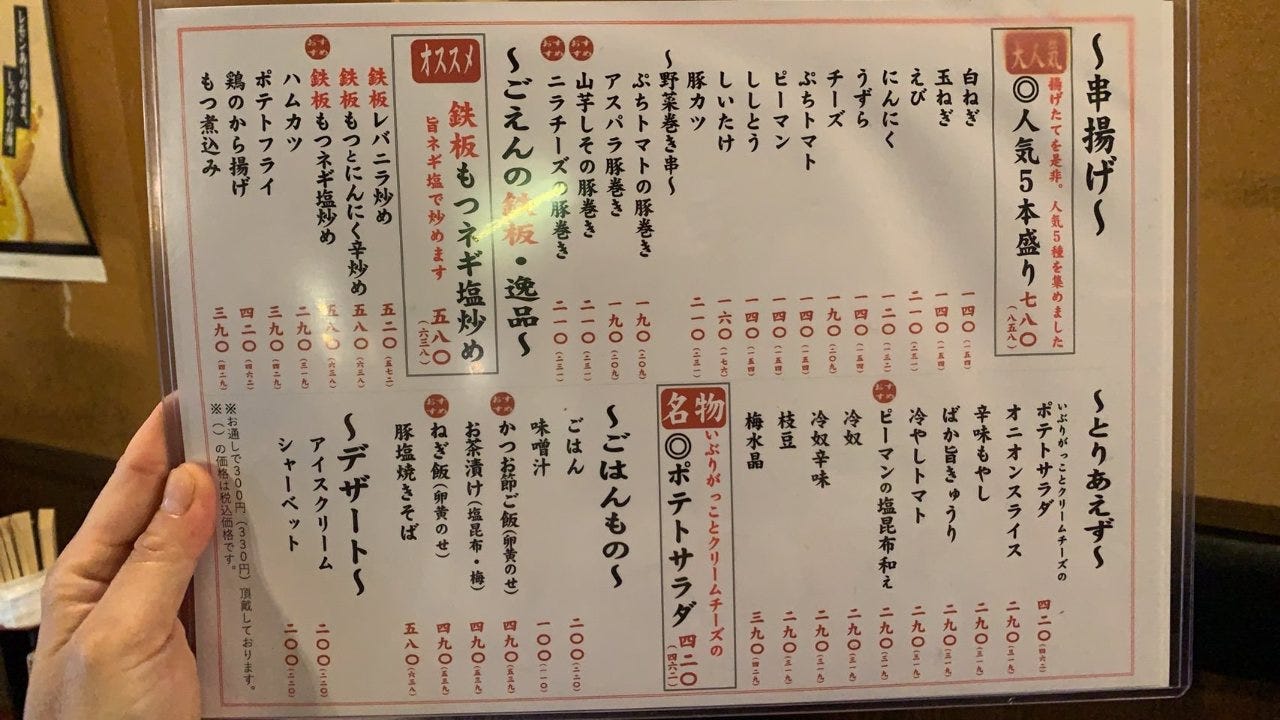 ～串揚げ～
大人気
揚げたてを是非。人気5種を集めました
◎人気5本盛り 七八〇（八五八）
白ねぎ 一四〇（一五四）
玉ねぎ 一四〇（一五四）
えび 二一〇（二三一）
にんにく 一二〇（一三二）
うずら 一四〇（一五四）
チーズ 一九〇（二〇九）
ぷちトマト 一四〇（一五四）
ピーマン 一四〇（一五四）
ししとう 一四〇（一五四）
しいたけ 一六〇（一七六）
豚カツ 二一〇（二三一）
～野菜巻き串～
ぷちトマトの豚巻き 一九〇（二〇九）
アスパラ豚巻き 一九〇（二〇九）
おすすめ
山芋しその豚巻き 二一〇（二三一）
おすすめ
ニラチーズの豚巻き 二一〇（二三一）
～ごえんの鉄板・逸品～
オススメ
鉄板もつネギ塩炒め 五八〇（六三八）
旨ネギ塩で炒めます
鉄板レバニラ炒め 五二〇（五七二）
鉄板もつとにんにく辛炒め 五八〇（六三八）
おすすめ
鉄板もつネギ塩炒め 五八〇（六三八）
ハムカツ 二九〇（三一九）
ポテトフライ 三九〇（四二九）
鶏のから揚げ 四二〇（四六二）
もつ煮込み 三九〇（四二九）
～とりあえず～
いぶりがっことクリームチーズの
ポテトサラダ 四二〇（四六二）
オニオンスライス 二九〇（三一九）
辛味もやし 二九〇（三一九）
ばか旨きゅうり 二九〇（三一九）
冷やしトマト 二九〇（三一九）
おすすめ
ピーマンの塩昆布和え 二九〇（三一九）
冷奴 二九〇（三一九）
冷奴辛味 二九〇（三一九）
枝豆 二九〇（三一九）
梅水晶 三九〇（四二九）
名物
いぶりがっことクリームチーズの
◎ポテトサラダ 四二〇（四六二）
～ごはんもの～
ごはん 二〇〇（二二〇）
味噌汁 一〇〇（一一〇）
おすすめ
かつお節ご飯（卵黄のせ） 四九〇（五三九）
お茶漬け（塩昆布・梅） 四九〇（五三九）
おすすめ
ねぎ飯（卵黄のせ） 四九〇（五三九）
豚塩焼きそば 五八〇（六三八）
～デザート～
アイスクリーム 二〇〇（二二〇）
シャーベット 二〇〇（二二〇）
※お通しで300円（330円）頂戴しております。
※（ ）の価格は税込価格です。
レモンありのまま、
しっかりお酒。